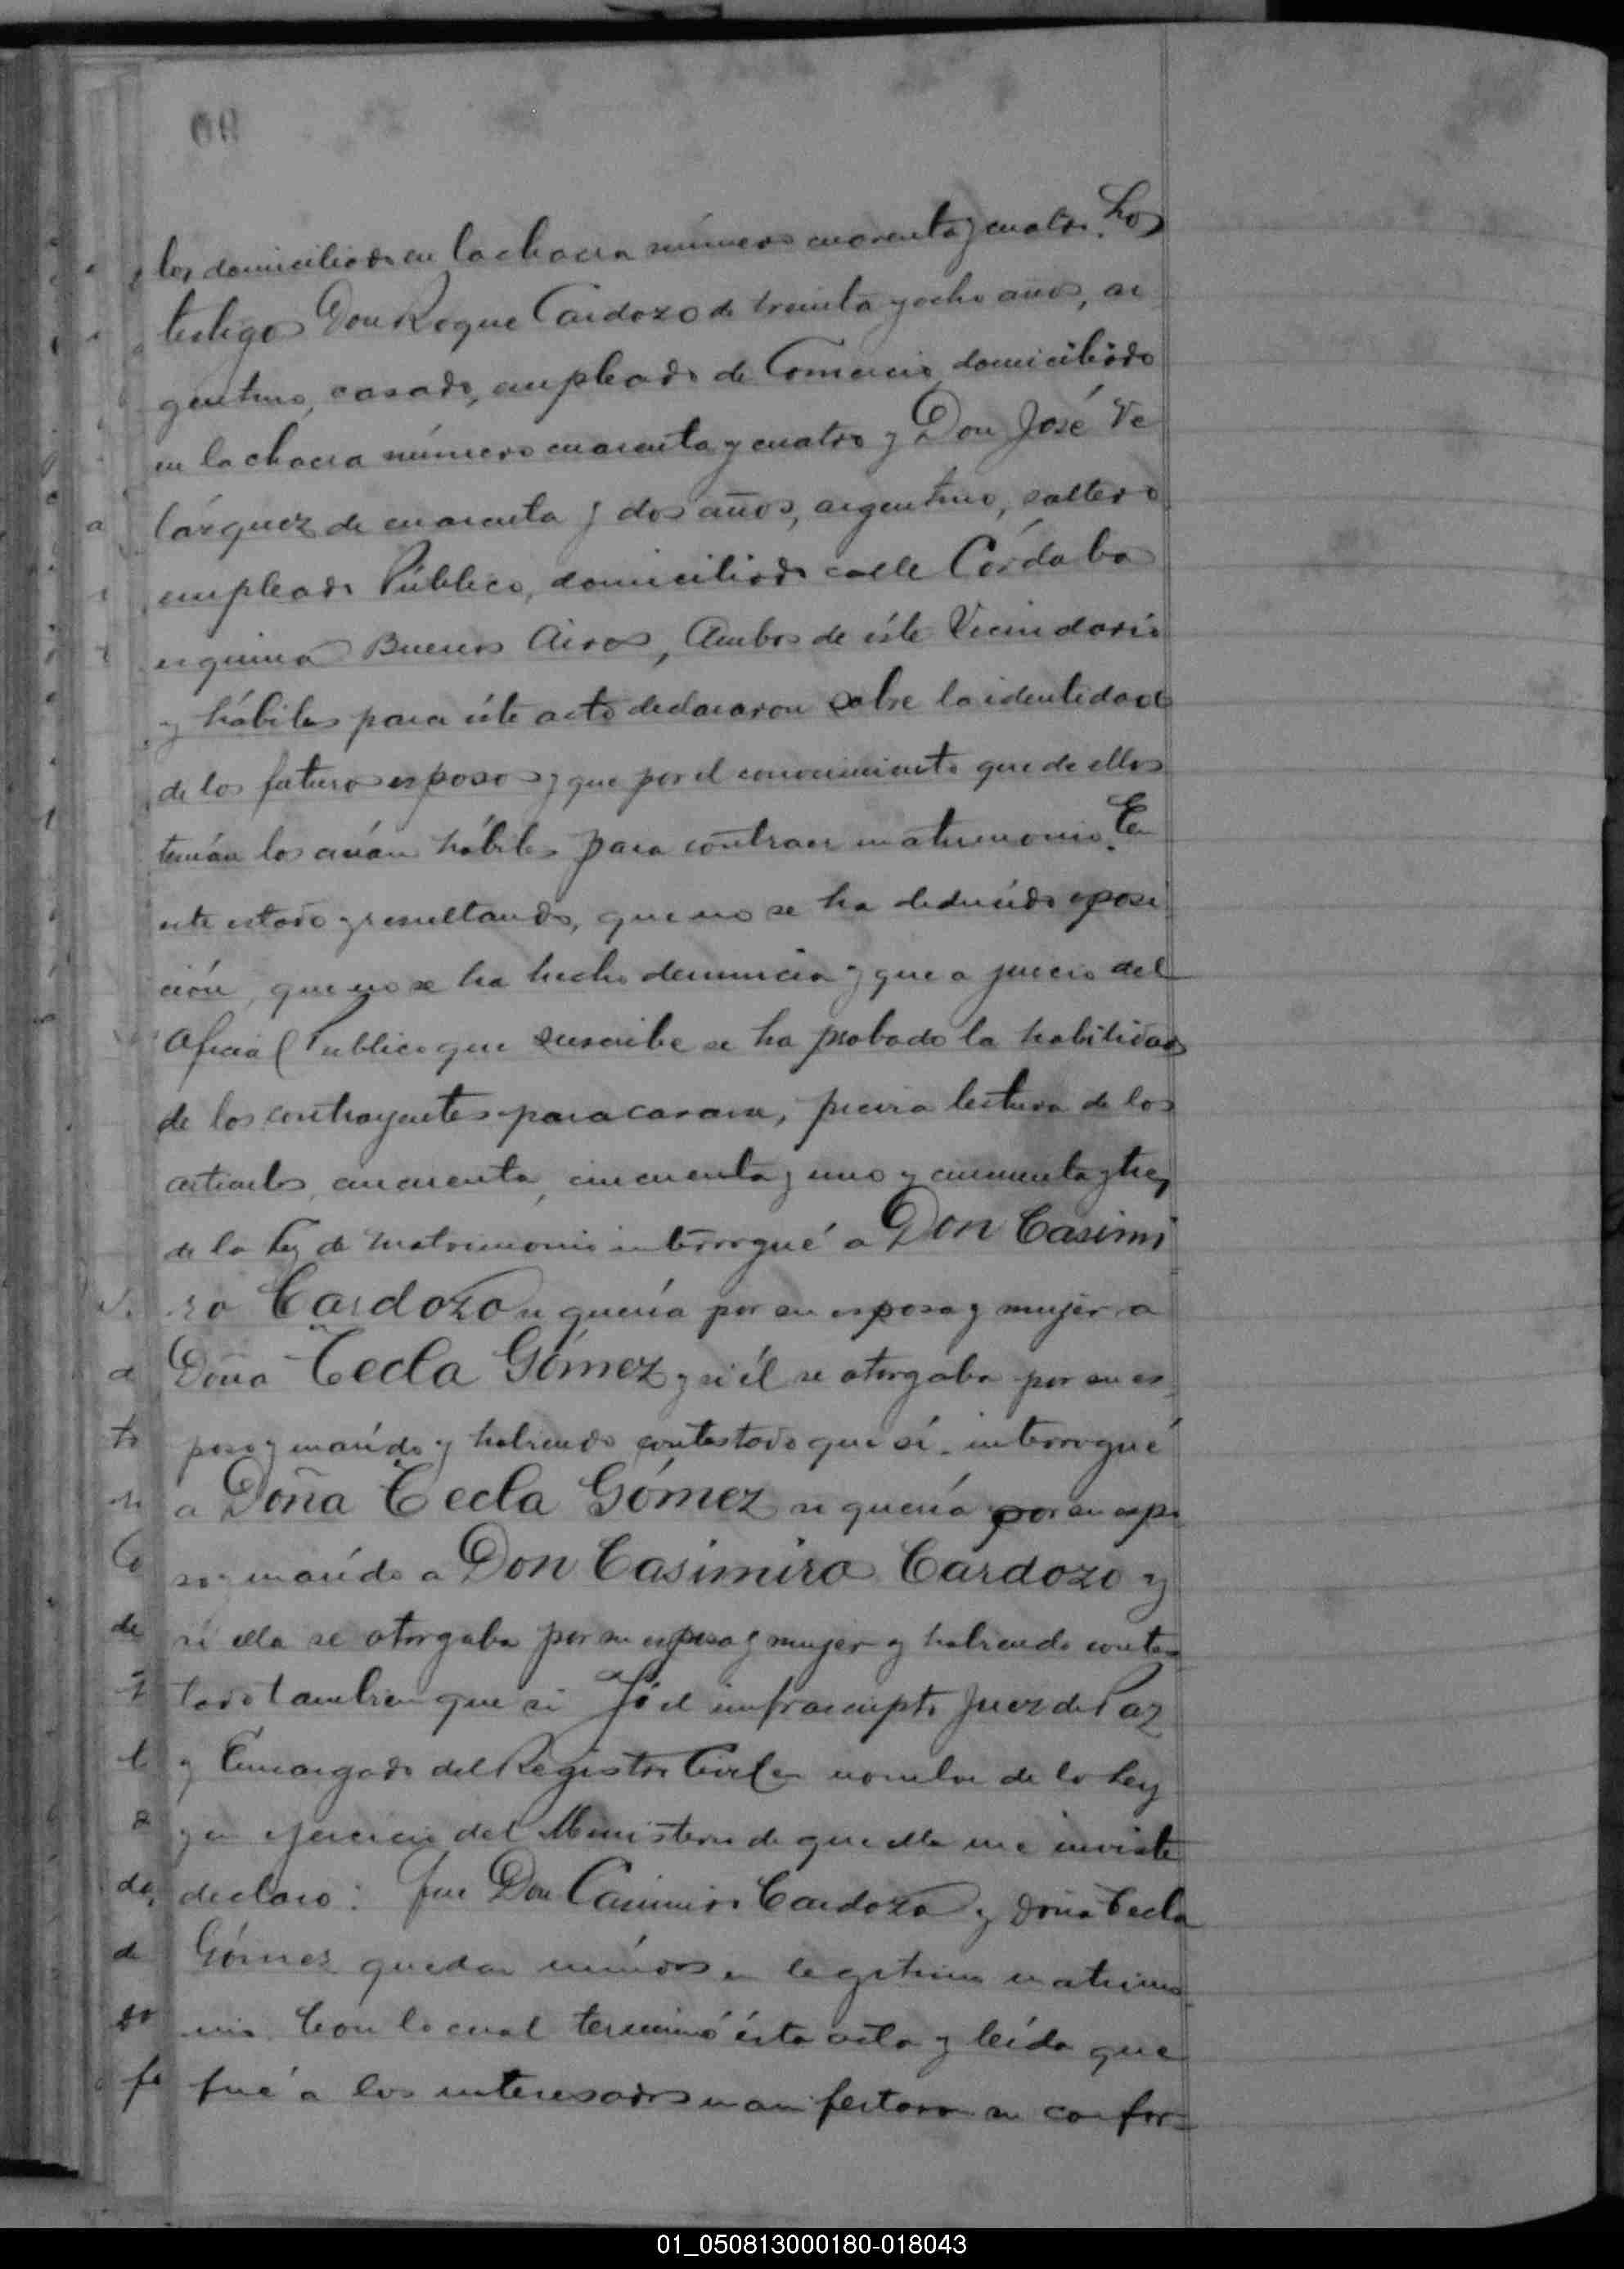 los domiciliado en la chacra número cuarenta y cuatro. Los
testigos Don Roque Cardozo de treinta y ocho años, ar
gentino, casado, empleado de Comercio, domiciliado
en la chacra número cuarenta y cuatro y Don José Ve
lázquez de cuarenta y dos años, argentino, soltero
empleado Público, domiciliado calle Córdoba
esquina Buenos Aires, Ambos de éste Vecindario
y hábiles para éste acto declararon sobre la identidad
de los futuros esposos y que por el conocimiento que de ellos
tenían los creían hábiles para contraer matrimonio. En
este estado y resultando, que no se ha deducido oposi
ción, que no se ha hecho denuncia y que a juicio del
Oficial Publico que suscribe se ha probado la habilidad
de los contrayentes para casarse, previa lectura de los
artículos, cincuenta, cincuenta y uno y cincuenta y tres
de la Ley de Matrimonio interrogué a Don Casimi
ro Cardozo si quería por su esposa y mujer a
Doña Tecla Gómez y si él se otorgaba por su es
poso y marido y habiendo contestado que sí. interrogué
a Doña Tecla Gómez si quería por su espo
so y marido a Don Casimiro Cardozo y
si ella se otorgaba por su esposa y mujer y habiendo contes
tado tambien que si Yó el infrascripto Juez de Paz
y Encargado del Registro Civil en nombre de la Ley
y en ejercicio del Ministerio de que ella me inviste
declaro: Que Don Casimiro Cardozo y Doña Tecla
Gómez quedan unidos en legitimo matrimo
nio. Con lo cual terminó ésta acta y leída que
fué a los interesados manifestaron su confor=
01_050813000180-018043